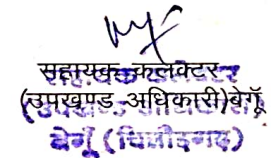 सहायक कलेक्टर
(उपखण्ड अधिकारी)बेगूॅं
बेगूॅं (चित्तौड़गढ़)